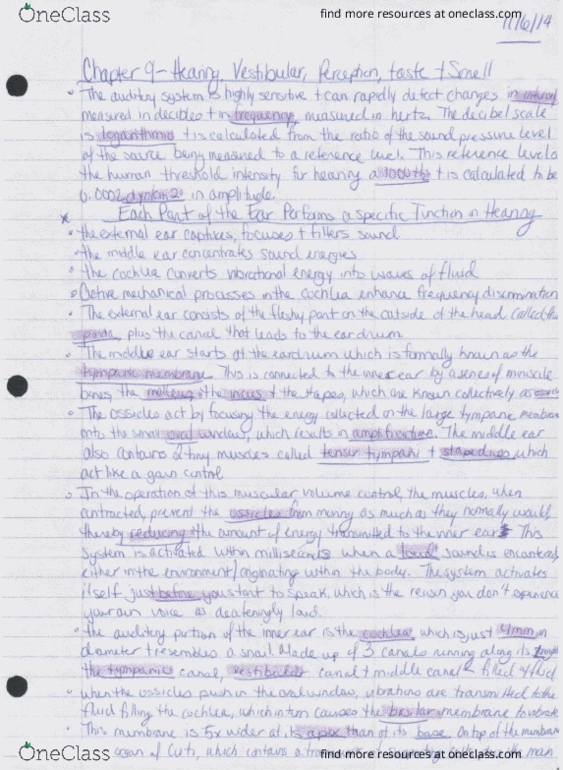 OneClass
find more resources at oneclass.com
11/6/14
Chapter 9 - Hearing, Vestibular, Perception, taste + Smell
The auditory system is highly sensitive + can rapidly detect changes in intensity
measured in decibles + in frequency, measured in hertz. The decibel scale
is logarithmic + is calculated from the ratio of the sound pressure level
of the source being measured to a reference level. This reference level is
the human threshold intensity for hearing a 1000 Hz + is calculated to be
0.0002 dyn/cm2 in amplitude.
* Each Part of the Ear Performs a specific Function in Hearing
the external ear captures, focuses + filters sound
the middle ear concentrates sound energies
the cochlea converts vibrational energy into waves of fluid
Active mechanical processes in the cochlea enhance frequency discrimination
The external ear consists of the fleshy part on the outside of the head, called the
pinna, plus the canal that leads to the eardrum
The middle ear starts at the eardrum which is formally known as the
tympanic membrane. This is connected to the inner ear by a series of miniscule
bones, the malleus, the incus + the stapes, which are known collectively as
The ossicles act by focusing the energy collected on the large tympanic membrane
onto the small oval window, which results in amplification. The middle ear
also contains 2 tiny muscles called tensor tympani + stapedius, which
act like a gain control
In the operation of this muscular volume control, the muscles, when
contracted, prevent the ossicles from moving as much as they normally would,
thereby reducing the amount of energy transmitted to the inner ear. This
system is activated within milliseconds when a loud sound is encountered,
either in the environment/originating within the body. The system activates
itself just before you start to speak, which is the reason you don't experience
your own voice as deafeningly loud.
the auditory portion of the inner ear is the cochlea, which is just 4mm in
diameter + resembles a snail. Made up of 3 canals running along its length
the tympanic canal, vestibular canal + middle canal - filled w/ fluid
when the ossicles push in the oval window, vibrations are transmitted to the
fluid filling the cochlea, which in turn causes the basilar membrane to vibrate
This membrane is 5x wider at its apex than at its base. On top of the membrane
organ of Corti, which contains a the main
OneClass
find more resources at oneclass.com